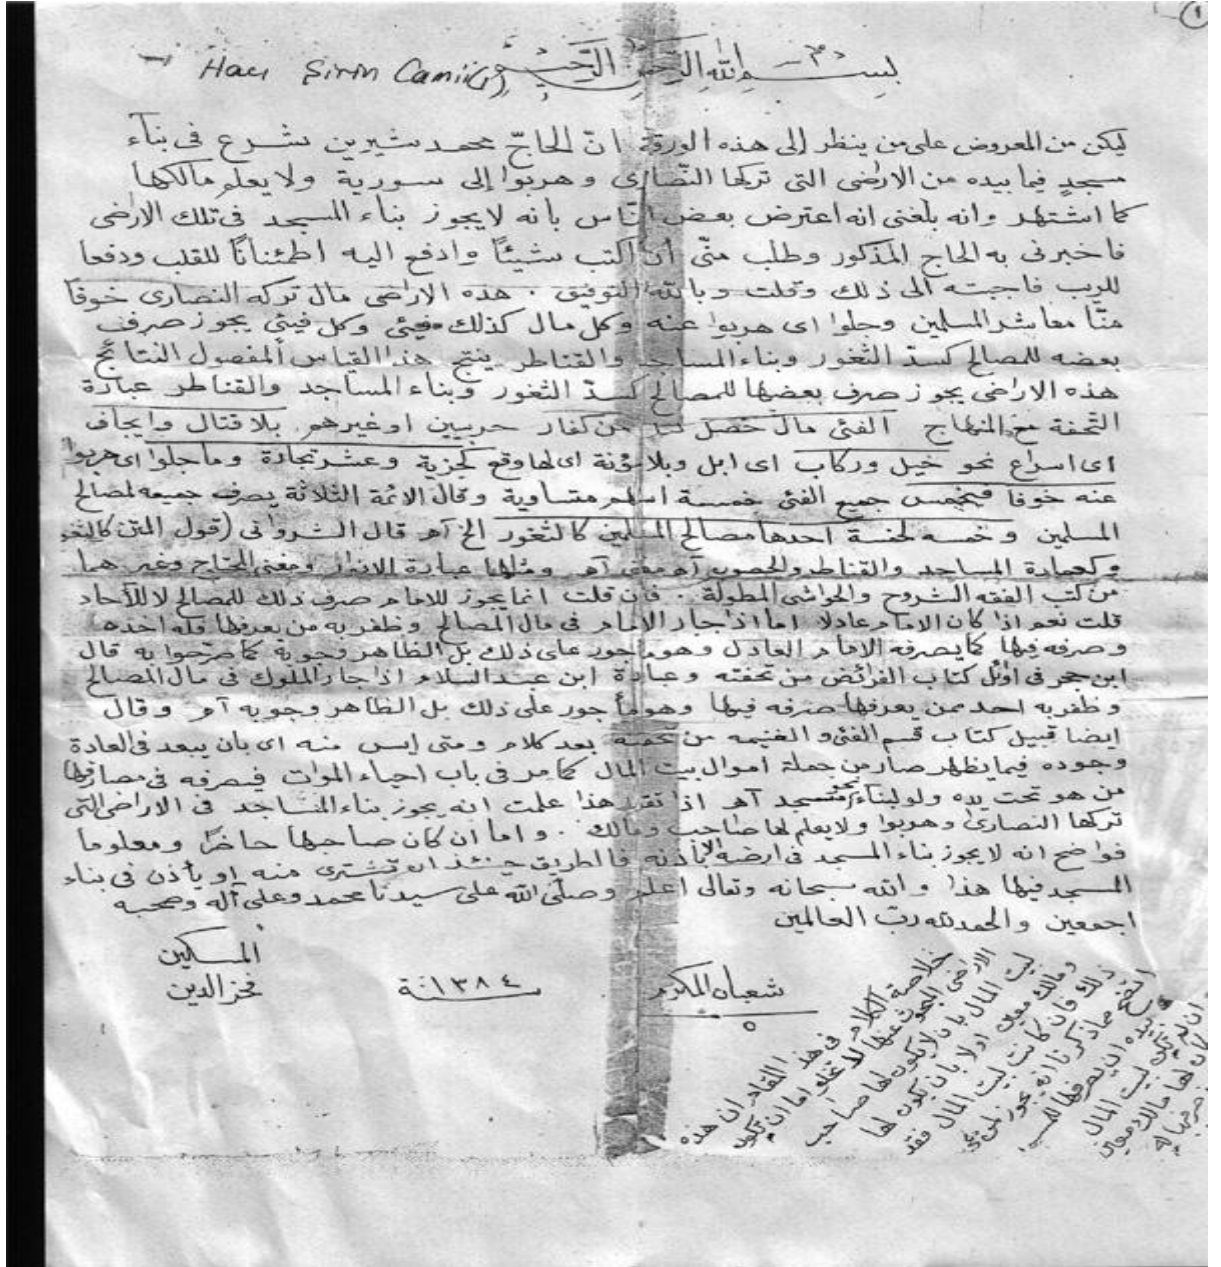 ١
بسم الله الرحمن الرحيم
Hacı Şirin Camii (1)
ليكن من المعروض على من ينظر إلى هذه الورقة انّ الحاجّ محمد شيرين شرع فى بناء
مسجدٍ فيما بيده من الاراضى التى تركها النّصارى وهربوا إلى سورية ولا يعلم مالكها
كما اشتهر وانه بلغنى انه اعترض بعض الناس بانه لا يجوز بناء المسجد فى تلك الاراضى
فاخبرنى به الحاج المذكور وطلب منّى ان اكتب شيئاً وادفع اليه اطمئناناً للقلب ودفعا
للريب فاجبته الى ذلك وقلت وبالله التوفيق . هذه الاراضى مال تركه النصارى خوفاً
منّا معاشر المسلمين وجلوا اى هربوا عنه وكل مال كذلك فيئ وكل فيئ يجوز صرف
بعضه للمصالح كسدّ الثغور وبناء المساجد والقناطر ينتج هذا القياس المفصول النتائج
هذه الاراضى يجوز صرف بعضها للمصالح كسدّ الثغور وبناء المساجد والقناطر عبارة
التحفة مع المنهاج الفئ مال حصل لنا من كفار حربيين او غيرهم بلا قتال وايجاف
اى اسراع نحو خيل وركاب اى ابل وبلا مؤنة اى لها وقع كجزية وعشر تجارة وما جلوا اى هربوا
عنه خوفا فيخمس جميع الفئ خمسة اسهم متساوية وقال الائمة الثلاثة يصرف جميعه لمصالح
المسلمين وخمسه لخمسة احدها مصالح المسلمين كالثغور الخ آهـ قال الشروانى (قول المتن كالثغور
وكعمارة المساجد والقناطر والحصون آهـ مغنى آهـ ومثلها عبارة الانوار ومغنى المحتاج وغيرهما
من كتب الفقه الشروح والحواشى المطولة . فان قلت انما يجوز للامام صرف ذلك للمصالح لا للآحاد
قلت نعم اذا كان الامام عادلا اما اذا جار الامام فى مال المصالح وظفر به من يعرفها فله اخذه
وصرفه فيها كما يصرفه الامام العادل وهو مأجور على ذلك بل الظاهر وجوبه كما صرّحوا به قال
ابن حجر فى اوائل كتاب الفرائض من تحفته وعبارة ابن عبد السلام اذا جار الملوك فى مال المصالح
وظفر به احد ممن يعرفها صرفه فيها وهو مأجور على ذلك بل الظاهر وجوبه آهـ وقال
ايضا قبيل كتاب قسم الفئ والغنيمه من تحفته بعد كلام ومتى ايس منه اى بان يبعد فى العادة
وجوده فيما يظهر صار من جملة اموال بيت المال كما مر فى باب احياء الموات فيصرفه فى مصارفها
من هو تحت يده ولو لبناء نحو مسجد آهـ اذ تقرر هذا علمت انه يجوز بناء المساجد فى الاراضى التى
تركها النصارى وهربوا ولا يعلم لها صاحب ومالك . واما ان كان صاحبها حاضرًا ومعلوما
فواضح انه لا يجوز بناء المسجد فى ارضه الا باذنه فالطريق حينئذ ان تشترى منه او يأذن فى بناء
المسجد فيها هذا والله سبحانه وتعالى اعلم وصلّى الله على سيدنا محمد وعلى آله وصحبه
اجمعين والحمد لله ربّ العالمين
المسكين
فخر الدين
شعبان المكرم ١٣٨٤ سنة
٥
خلاصة الكلام فى هذا المقام ان هذه
الاراضى المبحوث عنها لا تخلو اما ان تكون
لبيت المال بان لا يكون لها صاحب
ومالك معين اولا بان يكون لها
ذلك فان كانت لبيت المال فقد
اتضح مما ذكرنا انه يجوز لمن هى
بيده ان يصرفها
وان لم تكن لبيت المال